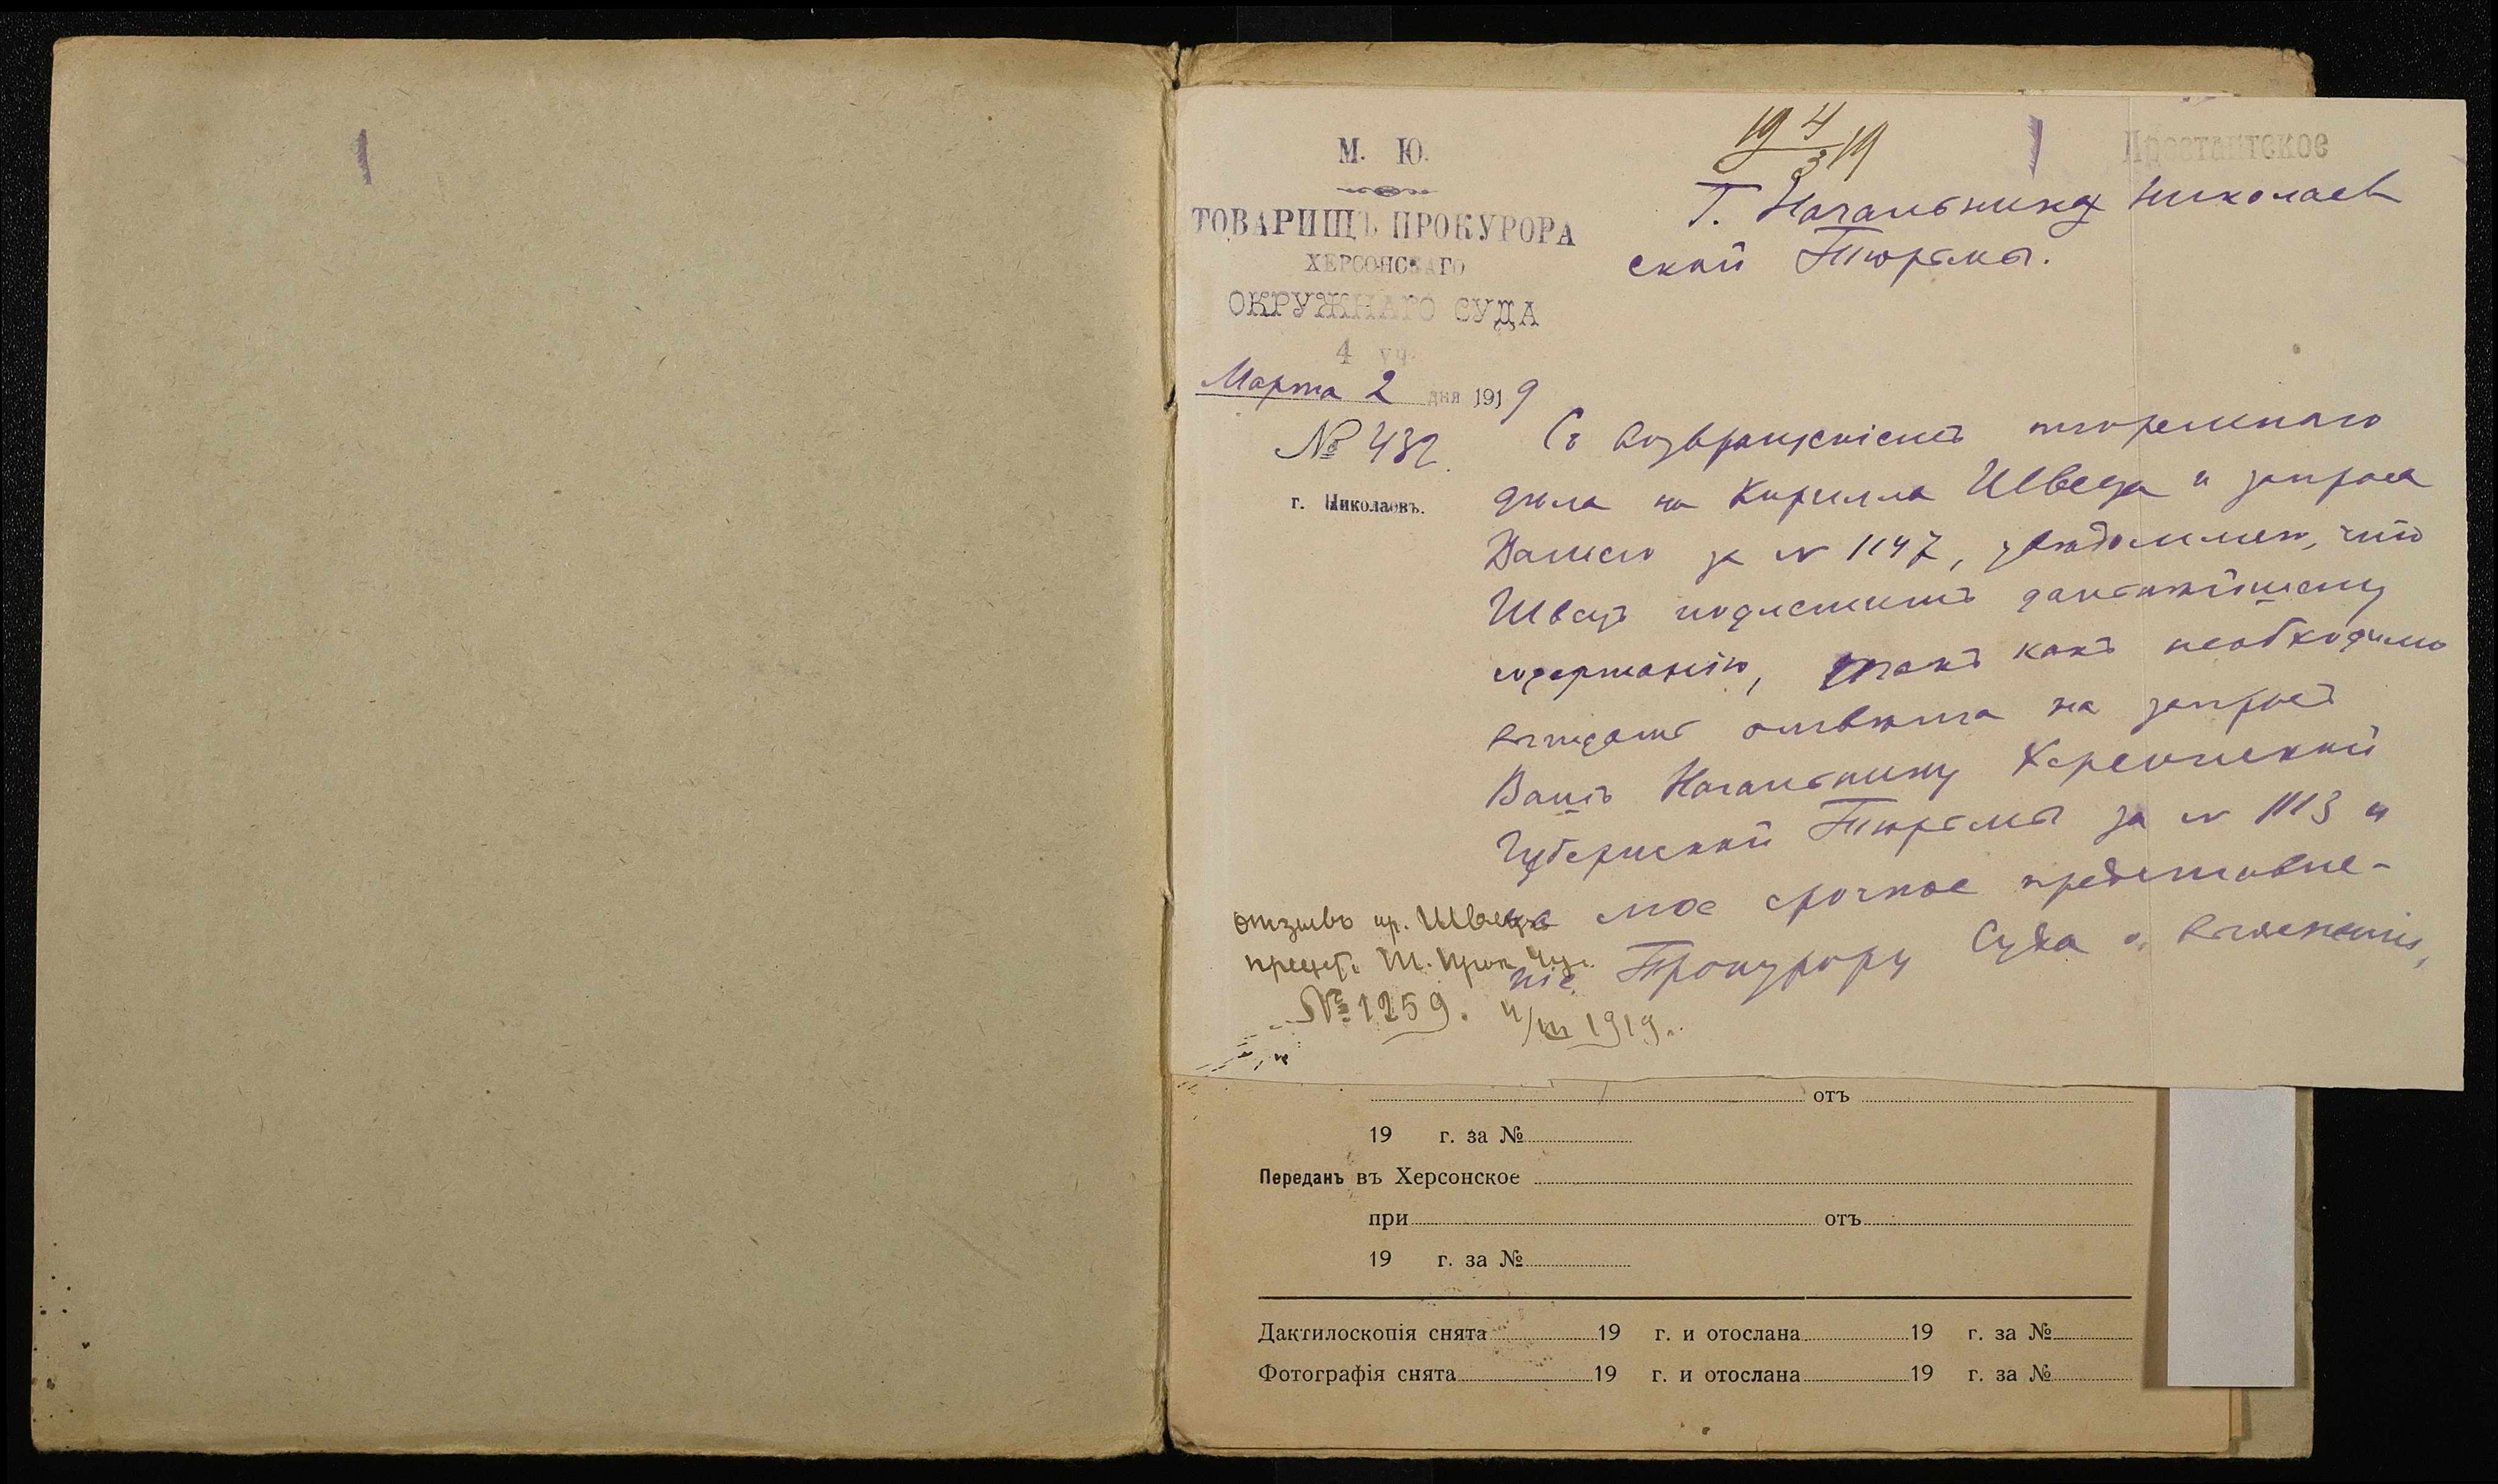 М. Ю.
ТОВАРИЩЪ ПРОКУРОРА
ХЕРСОНСКАГО
ОКРУЖНАГО СУДА
4 уч.
Марта 2 дня 1919
№ 432.
г. Николаевъ.
19 4/3 19
Арестантское
Г. Начальнику Николаев
ской Тюрьмы.
Съ возвращеніемъ тюремнаго
дѣла на Кирилла Швеца и запроса
Вашего за N 1147, увѣдомляю, что
Швецъ подлежитъ дальнѣйшему
содержанію, такъ какъ необходимо
выждать отвѣта на запросъ
Вашъ Начальнику Херсонской
Губернской Тюрьмы за N 1113 и
на мое срочное представле-
ніе Прокурору Суда о
отзывъ ар. Швеца
предст. Т. Прок. 4 уч.
№ 1259. 4/III 1919.
отъ
19 г. за №
Переданъ въ Херсонское
при отъ
19 г. за №
Дактилоскопія снята 19 г. и отослана 19 г. за №
Фотографія снята 19 г. и отослана 19 г. за №